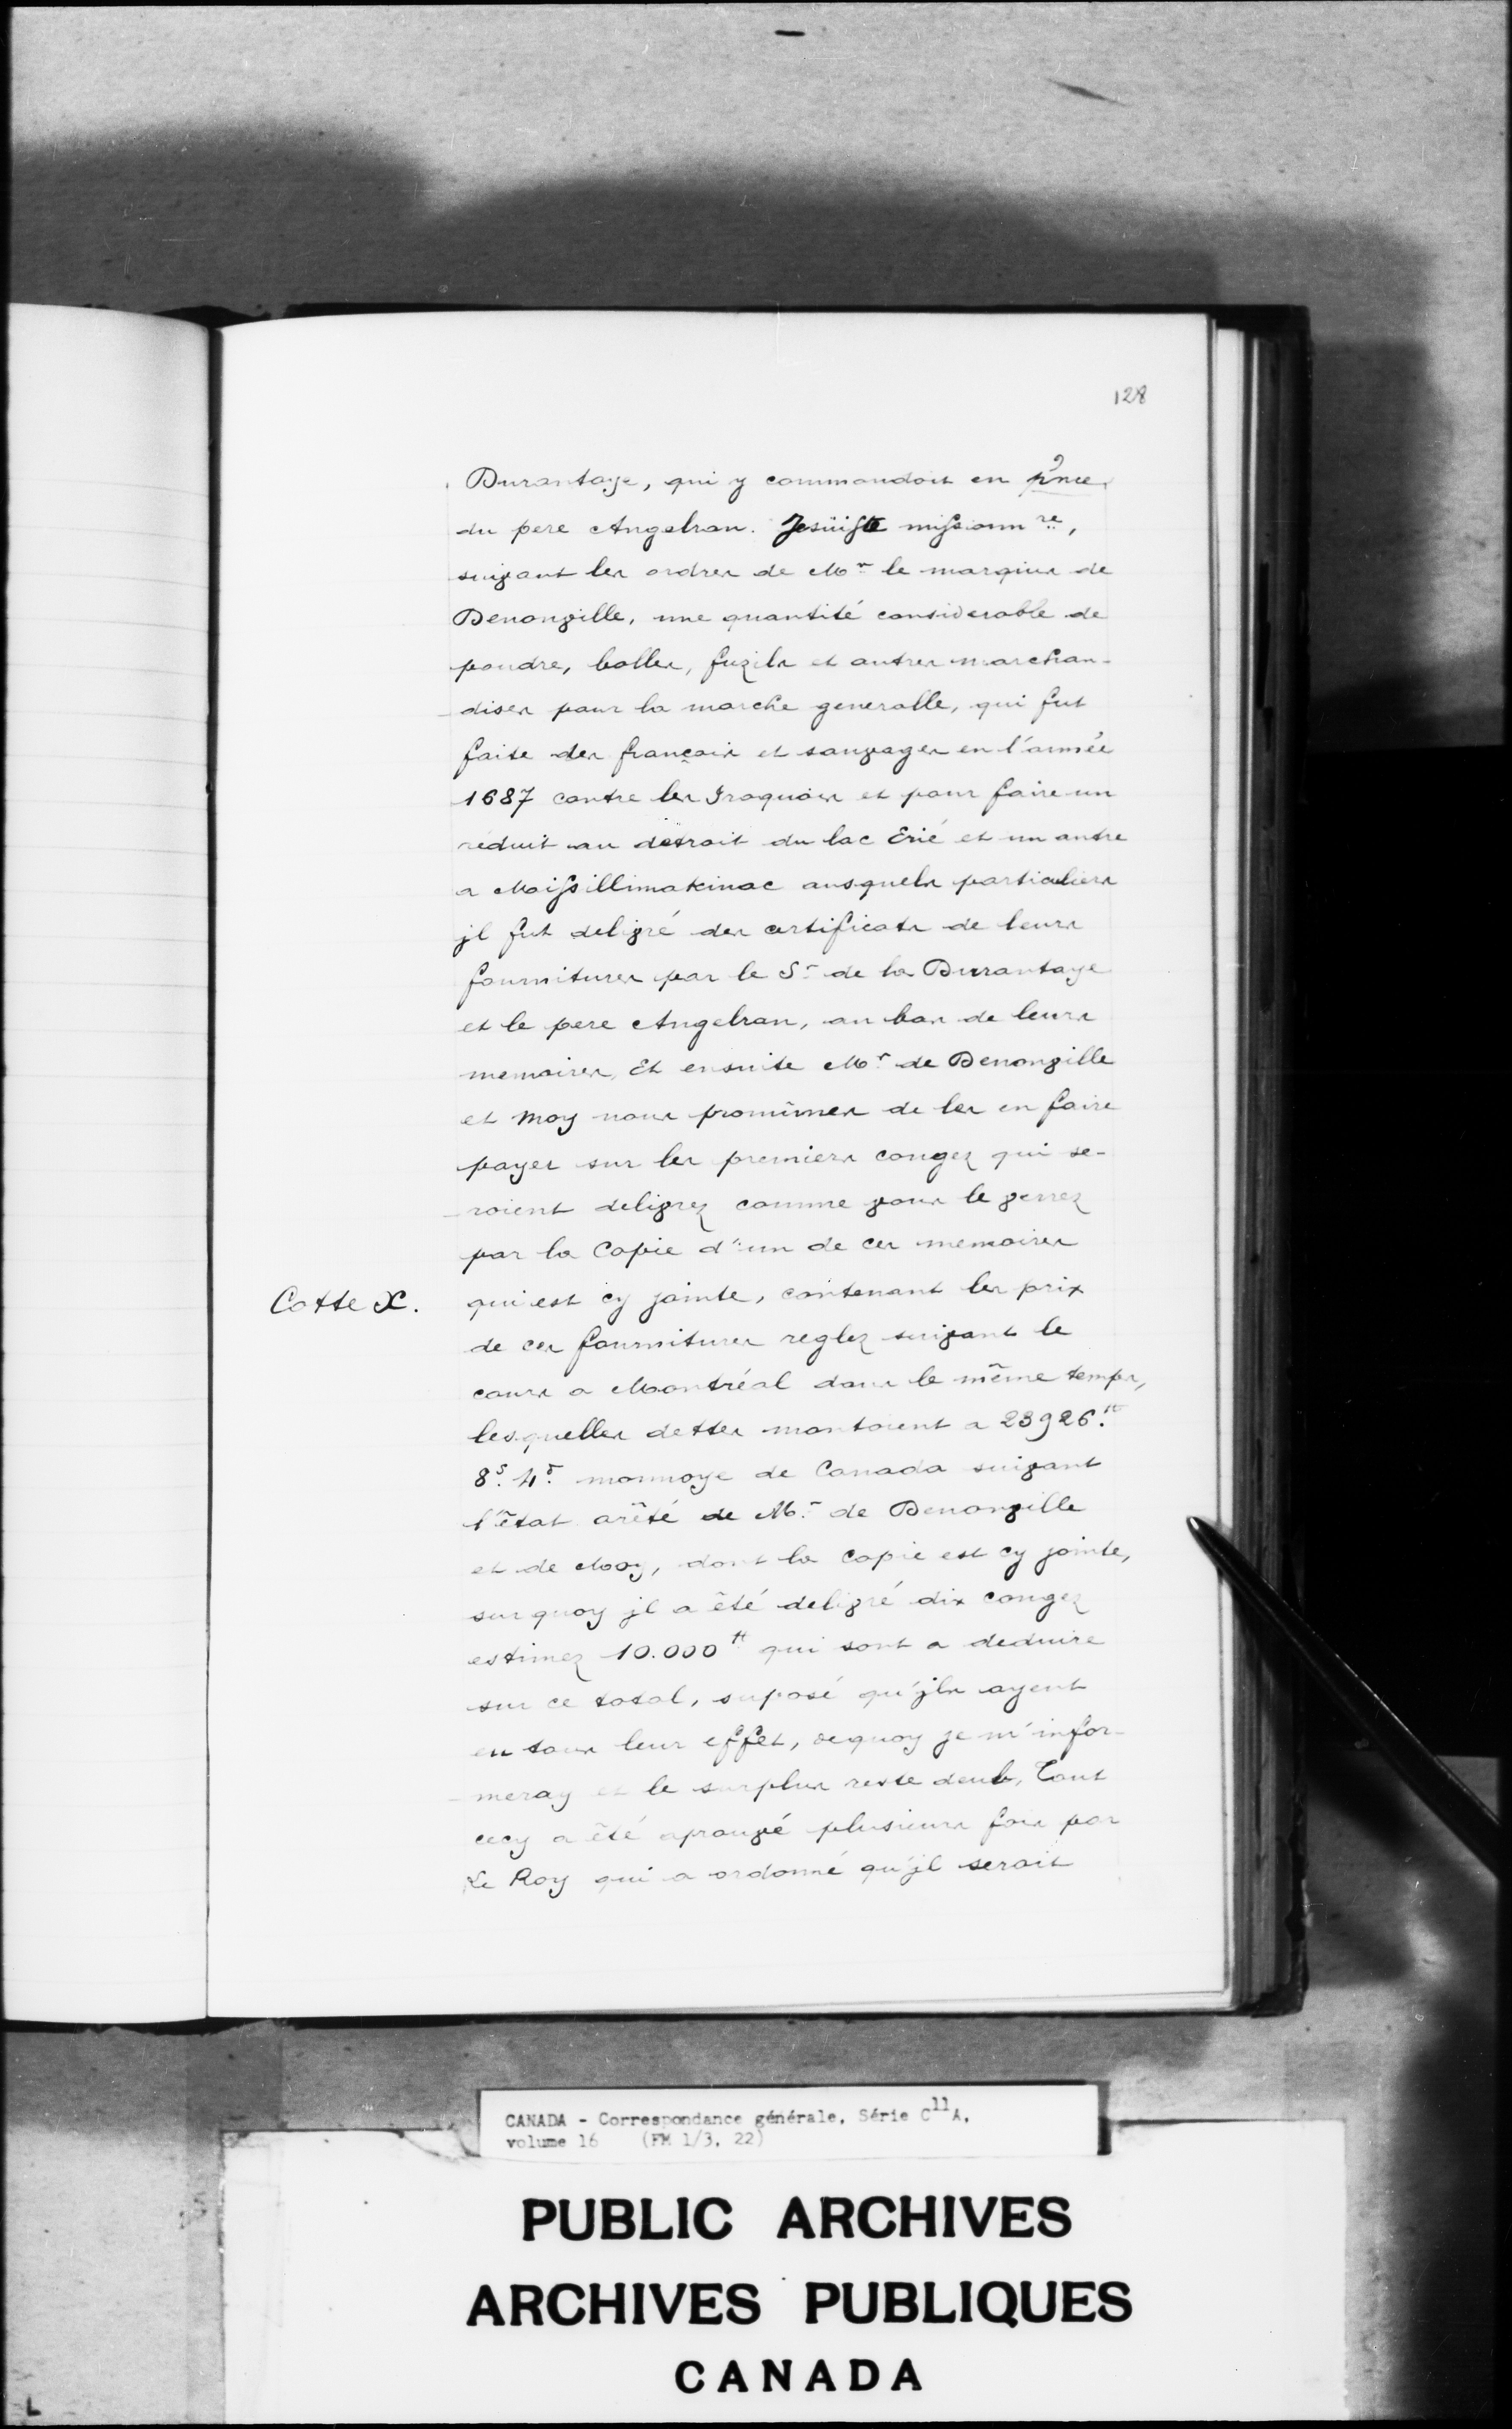 128
Durantaye, qui y commandoit en pnce
du pere Angelran. Jesüiste missionn.re,
suivant les ordres de Mr le marquis de
Denonville, une quantité considerable de
poudre, balles, fuzils et autres marchan-
dises pour la marche generalle, qui fut
faite des françois et sauvages en l'année
1687 contre les Iroquois et pour faire un
réduit au détroit du lac Erié et un autre
a Missillimakinac ausquels particuliers
jl fut delivré des certificats de leurs
fournitures par le Sr de la Durantaye
et le pere Angelran, au bas de leurs
memoires, Et ensuite Mr de Denonville
et moy nous promîmes de les en faire
payer sur les premiers congez qui se-
roient delivrez comme vous le verrez
par la Copie d'un de ces memoires
Cotte X. qui est cy jointe, contenant les prix
de ces fournitures reglez suivant le
cours a Montréal dans le même temps,
lesquelles dettes montoient a 23926.tt
8s. 4d. monnoye de Canada suivant
l'êtat arêté de Mr de Denonville
et de Moy, dont la copie est cy jointe,
surquoy jl a êté delivré dix congez
estimez 10.000tt qui sont a deduire
sur ce total, suposé qu'jls ayent
eu tous leur effet, dequoy je m'infor-
meray et le surplus reste deub, Tout
cecy a êté aprouvé plusieurs fois par
Le Roy qui a ordonné qu'jl serait
CANADA - Correspondance générale, Série C11A,
volume 16 (FM 1/3, 22)
PUBLIC ARCHIVES
ARCHIVES PUBLIQUES
CANADA
L